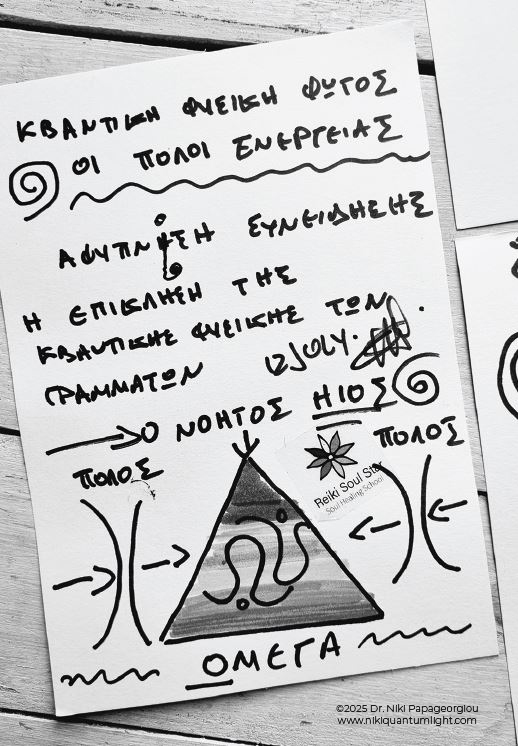 ΚΒΑΝΤΙΚΗ ΦΥΣΙΚΗ ΦΩΤΟΣ
ΟΙ ΠΟΛΟΙ ΕΝΕΡΓΕΙΑΣ
ΑΦΥΠΝΗΣΗ ΣΥΝΕΙΔΗΣΗΣ
Η ΕΠΙΚΛΗΣΗ ΤΗΣ
ΚΒΑΝΤΙΚΗΣ ΦΥΣΙΚΗΣ ΤΩΝ
ΓΡΑΜΜΑΤΩΝ 12 JULY.
Ο ΝΟΗΤΟΣ ΗΙΟΣ
ΠΟΛΟΣ
ΠΟΛΟΣ
Reiki Soul Star
Soul Healing School
ΟΜΕΓΑ
©2025 Dr. Niki Papageorgiou
www.nikiquantumlight.com